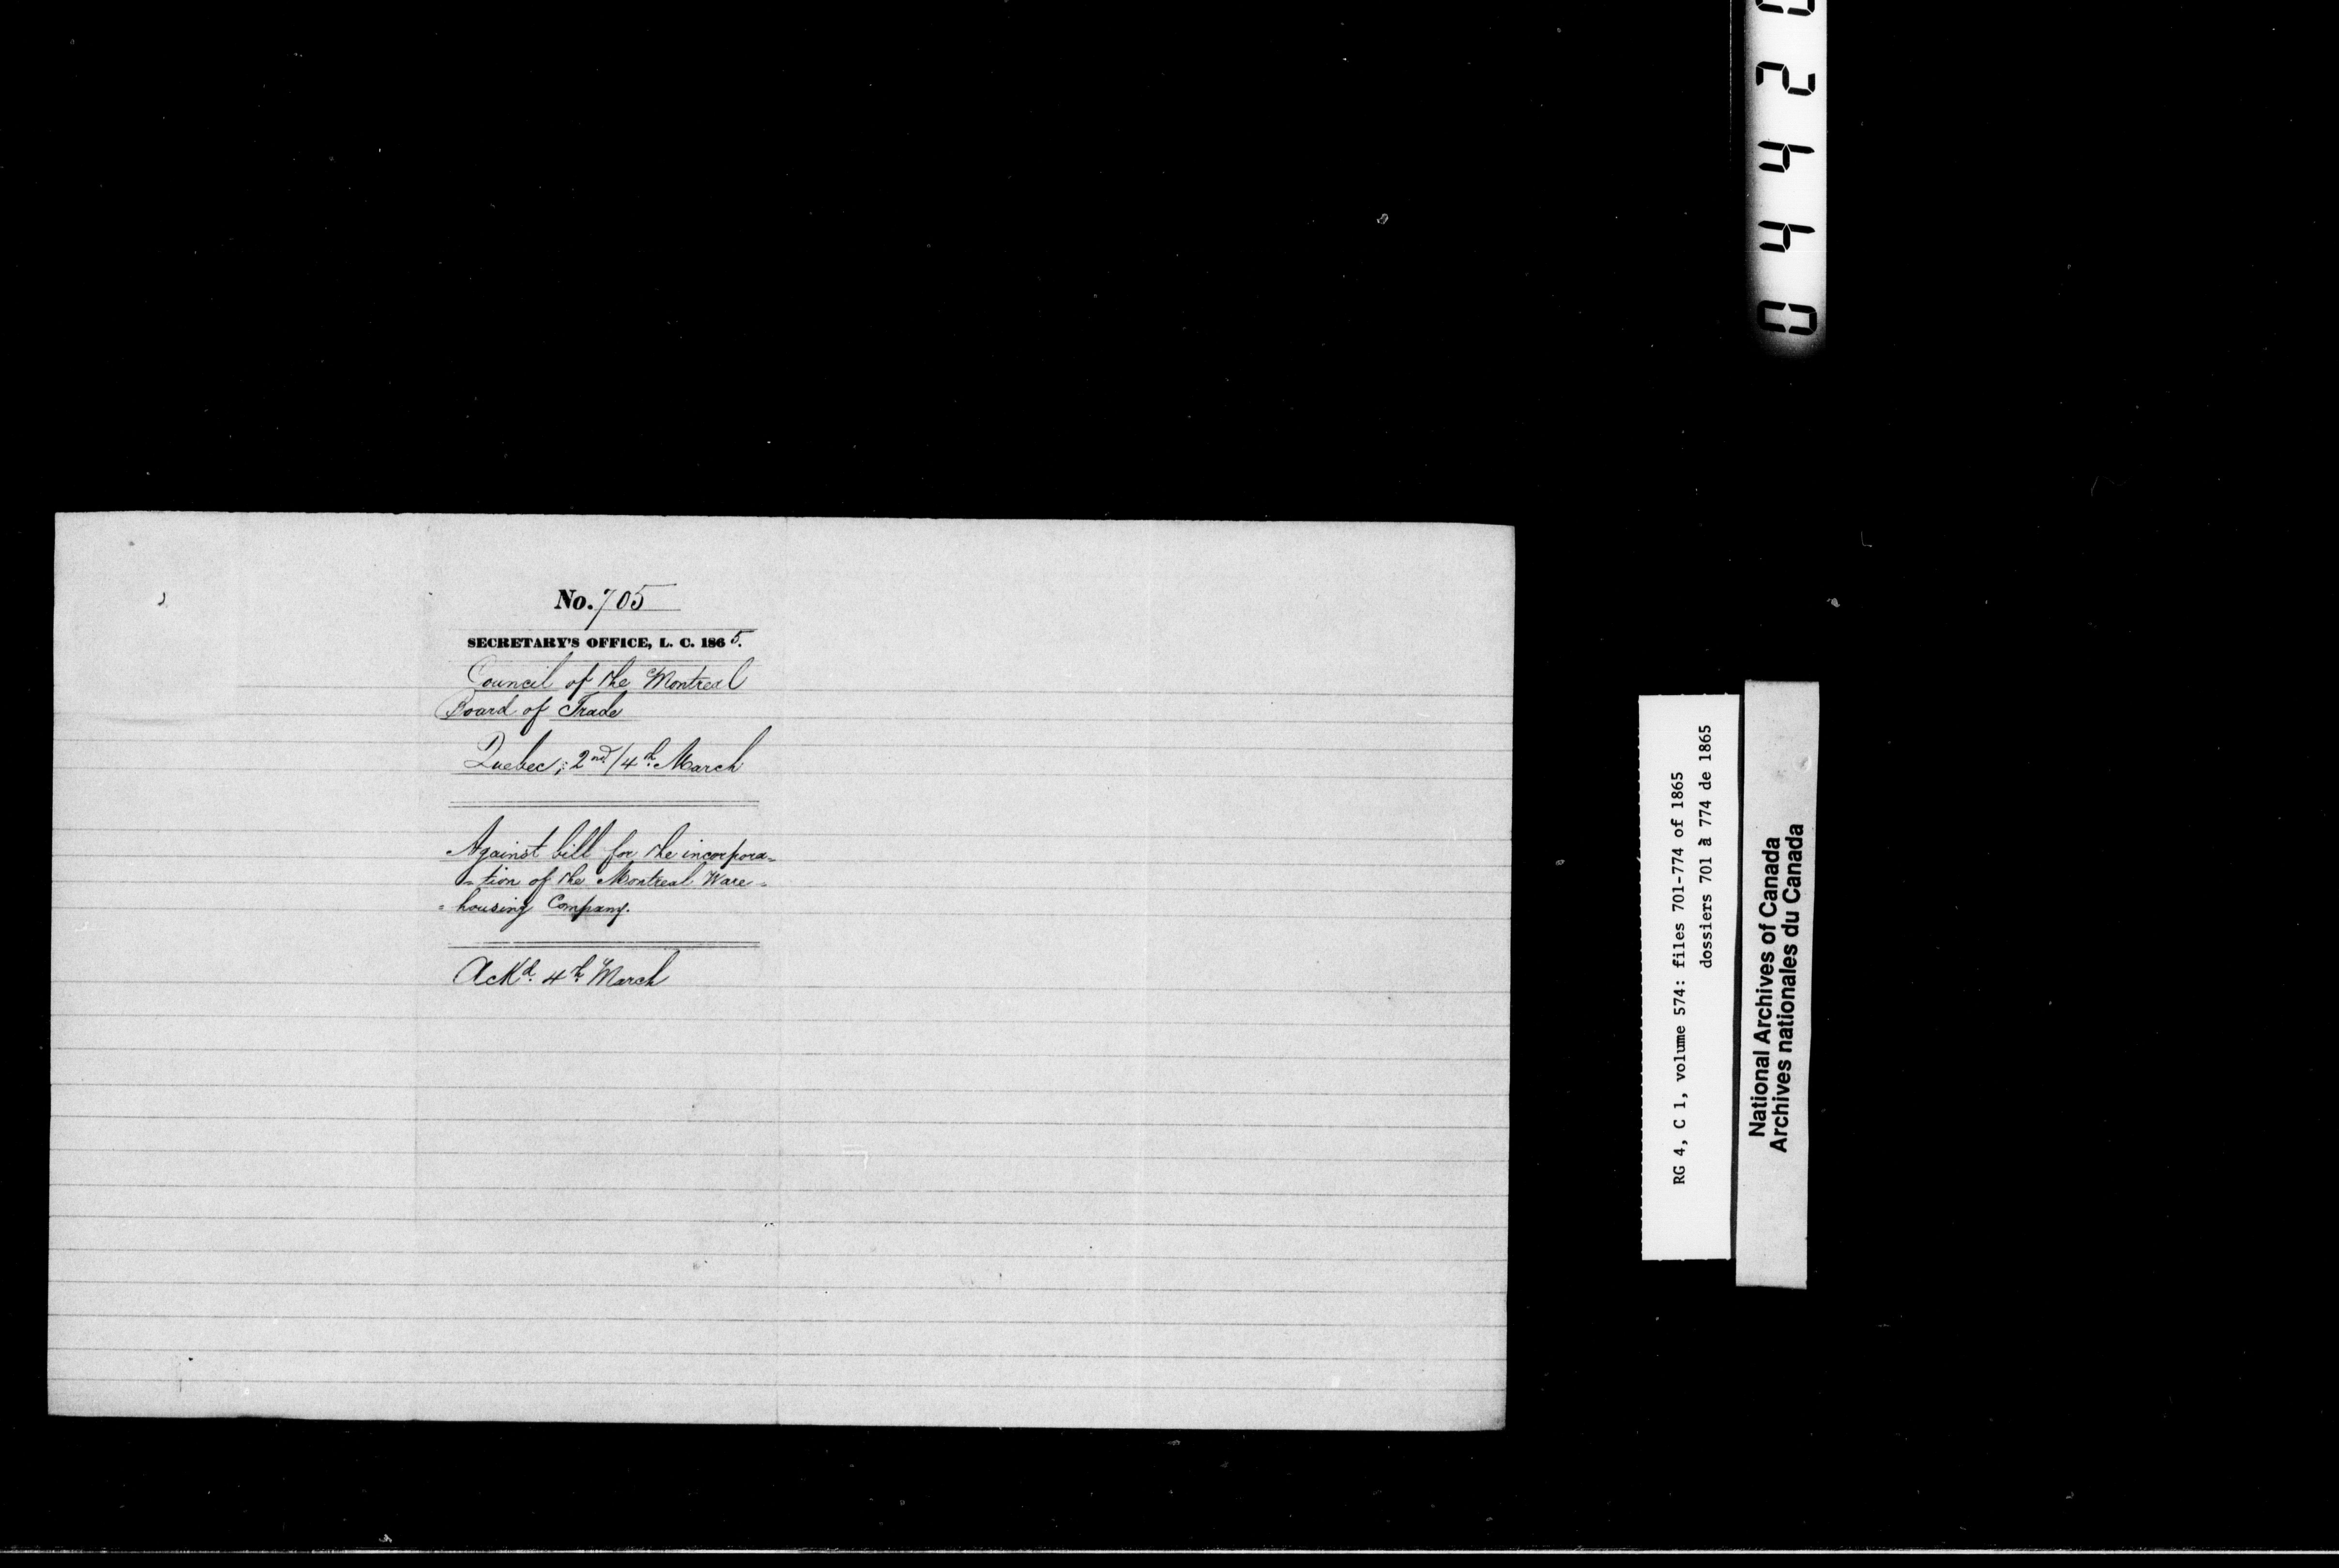 No. 705
SECRETARY'S OFFICE, L. C. 1865.
Council of the Montreal
Board of Trade
Quebec, 2nd/4th March
Against bill for the incorpora-
-tion of the Montreal Ware-
-housing Company.
Ackd. 4th March
RG 4, C 1, volume 574: files 701-774 of 1865
dossiers 701 à 774 de 1865
National Archives of Canada
Archives nationales du Canada
0 4 4 2